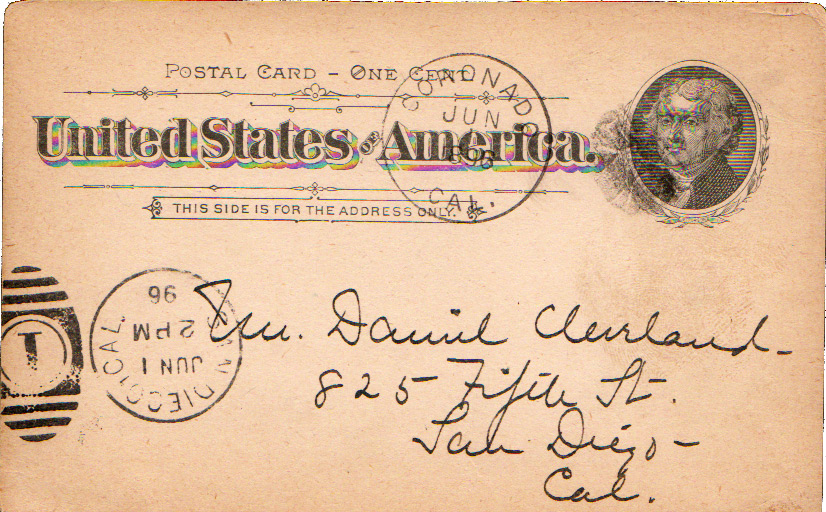 POSTAL CARD – ONE CENT.
United States OF America.
THIS SIDE IS FOR THE ADDRESS ONLY.
CORONADO
JUN
CAL.
SAN DIEGO, CAL.
JUN 1
2 PM
96
1
Mr. Daniel Cleveland -
825 Fifth St.
San Diego -
Cal.